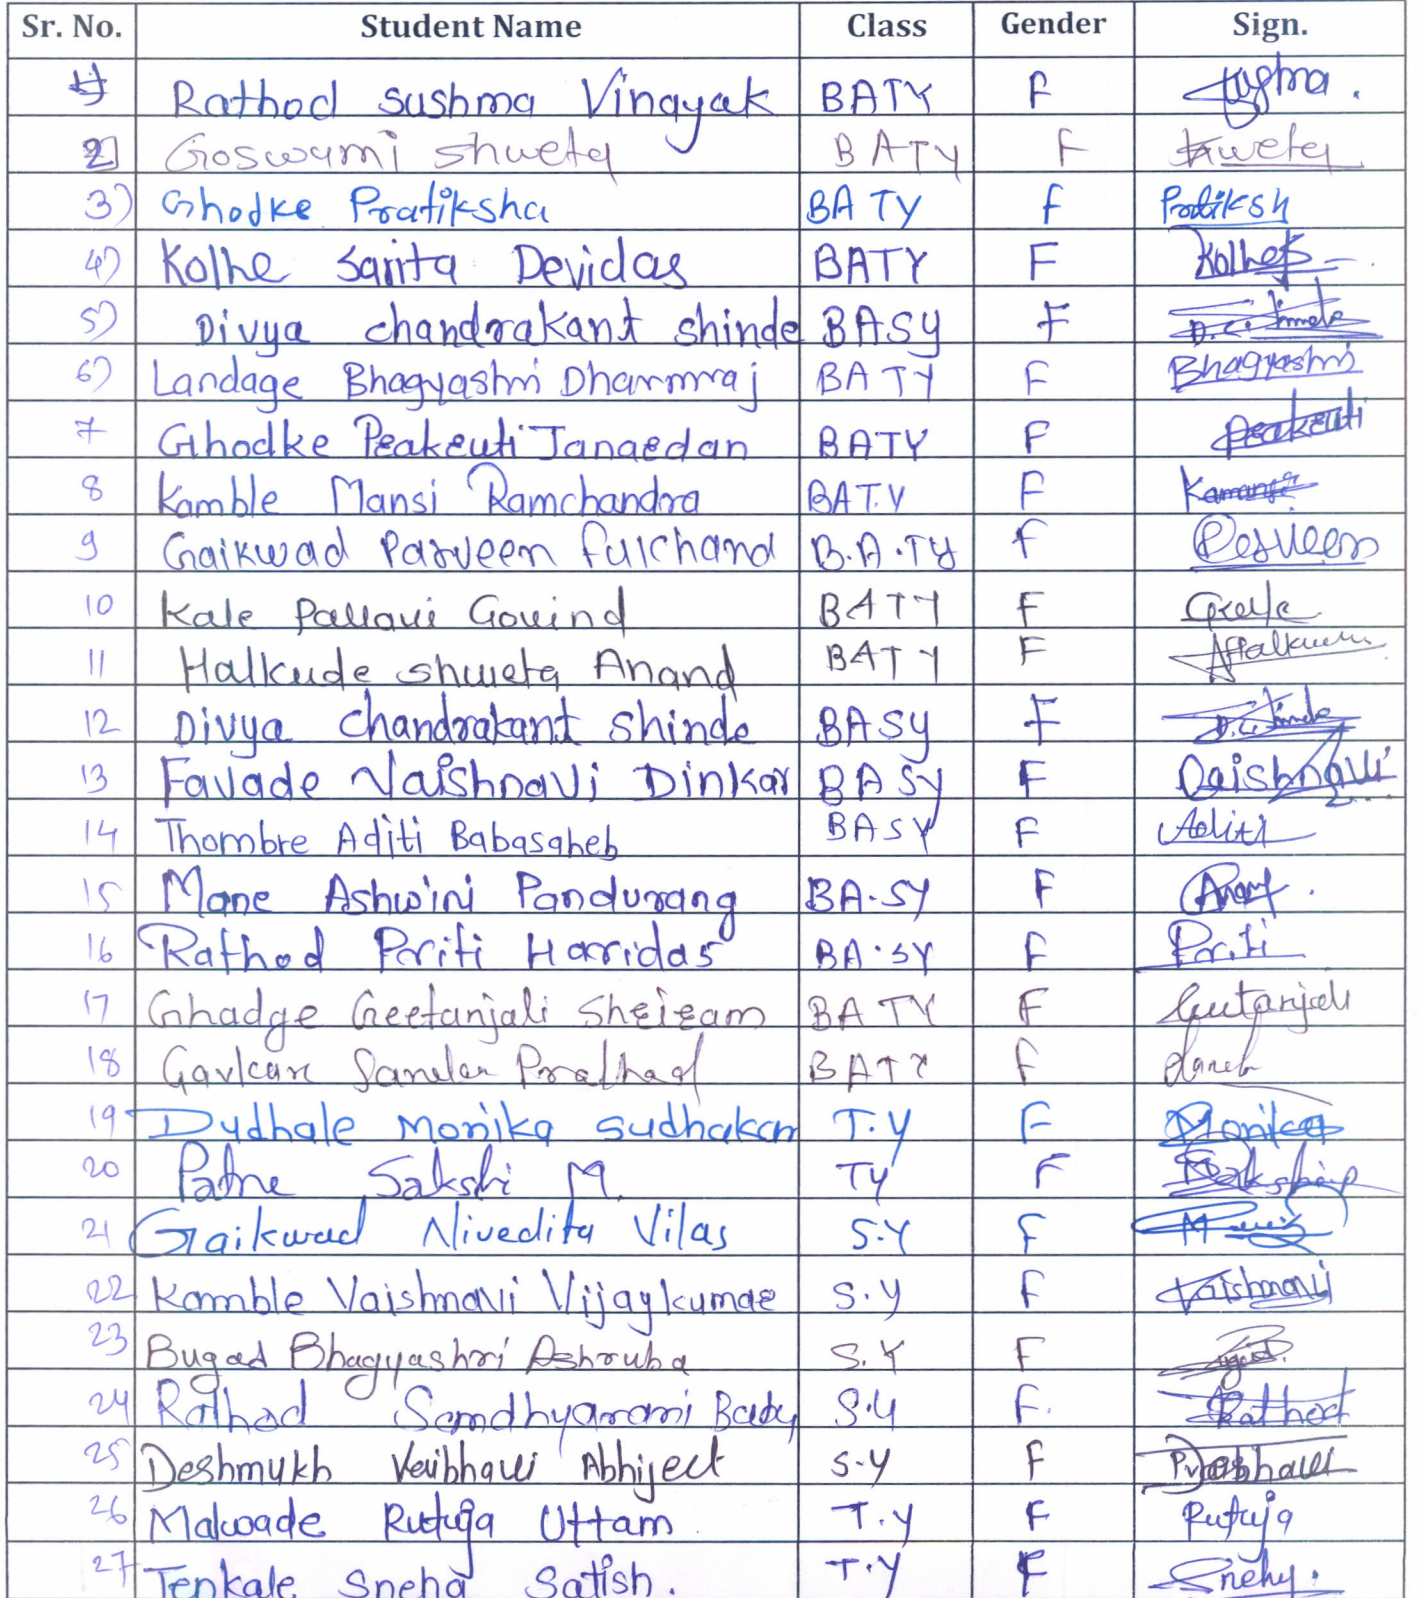 Sr. No. Student Name Class Gender Sign.
1) Rathod sushma Vinayak BATY F
2) Goswami shweta BATY F shweta
3) Ghodke Pratiksha BA TY f Pratiksh
4) Kolhe Sarita Devidas BATY F Kolhe
5) Divya chandrakant shinde BASY F D.C. Shinde
6) Landage Bhagyashri Dharmraj BATY F Bhagyashri
7 Ghodke Peakeuti Janaedan BATY F Peakeuti
8 Kamble Mansi Ramchandra BAT.Y F
9 Gaikwad Parveen fulchand B.A.TY f Parveen
10 Kale Pallavi Govind BATY F
11 Halkude shweta Anand BATY F
12 Divya chandrakant shinde BASY F D.C. Shinde
13 Favade Vaishnavi Dinkar BASY F Vaishnavi
14 Thombre Aditi Babasaheb BASY F Aditi
15 Mane Ashwini Pandurang BA.SY F
16 Rathod Priti Harridas BA.SY F Priti
17 Ghadge Geetanjali Sheieam BATY F Geetanjali
18 Pralhad BATY F
19 Dudhale Monika sudhakar T.Y F Monika
20 Patne Sakshi M. TY F Sakshi
21 Gaikwad Nivedita Vilas S.Y F
22 Kamble Vaishnavi Vijaykumae S.Y F Vaishnavi
23 Bugad Bhagyashri Ashruba S.Y F
24 Rathod Sandhyarani S.Y F. Rathod
25 Deshmukh Vaibhavi Abhijeet S-Y F
26 Malwade Rutuja Uttam T.Y F Rutuja
27 Tenkale Sneha Satish. T.Y F Sneha.